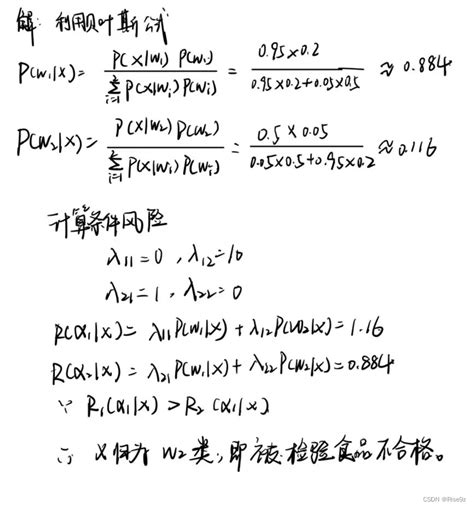 解: 利用贝叶斯公式
P(w₁|x) = P(x|w₁) P(w₁) / Σᵢ₌₁² P(x|wᵢ) P(wᵢ) = 0.95×0.2 / 0.95×0.2+0.05×0.5 ≈ 0.884
P(w₂|x) = P(x|w₂) P(w₂) / Σᵢ₌₁² P(x|wᵢ) P(wᵢ) = 0.5×0.05 / 0.05×0.5+0.95×0.2 ≈ 0.116
计算条件风险
λ₁₁=0 , λ₁₂=10
λ₂₁=1 , λ₂₂=0
R(α₁|x) = λ₁₁P(w₁|x) + λ₁₂P(w₂|x) = 1.16
R(α₂|x) = λ₂₁P(w₁|x) + λ₂₂P(w₂|x) = 0.884
∵ R₁(α₁|x) > R₂(α₁|x)
∴ x归为 w₂类, 即被检验食品不合格。